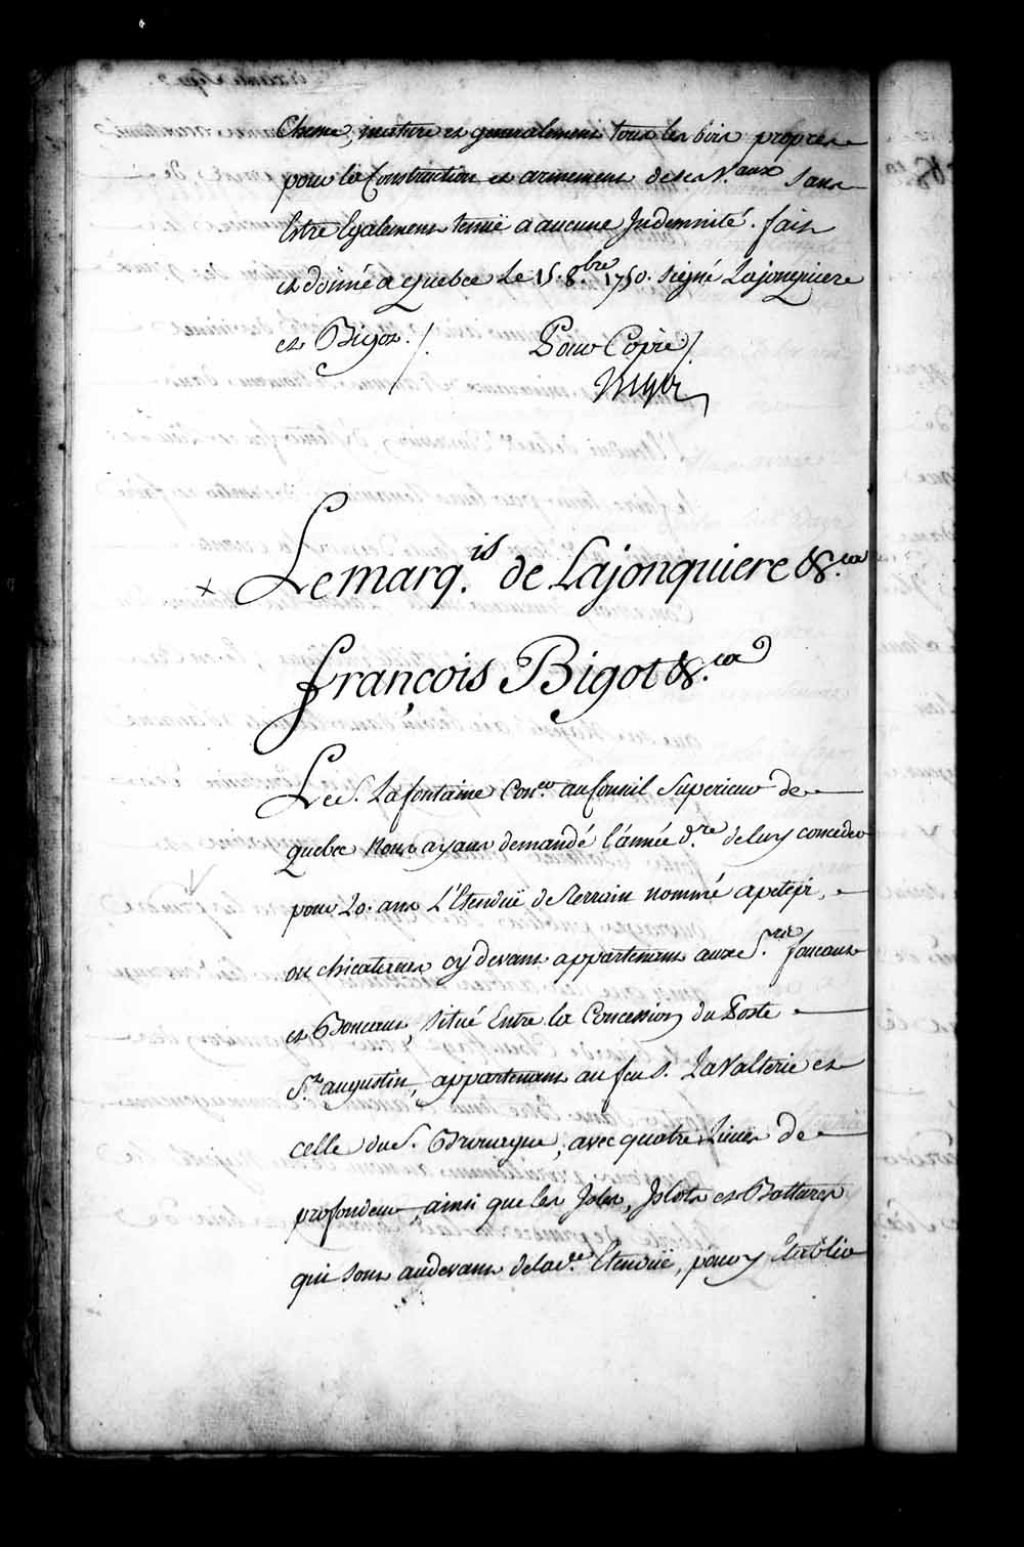 Chesne, mature et generalement tous les bois propres
pour la Construction et armement de ses V.aux sans
Estre Egalement tenüe a aucune Indemnité. fait
et donné a quebec Le 15. 8.bre 1750. signé Lajonquiere
et Bigot./.
Pour Copie/.
Bigot
+ Le marq.is de Lajonquiere &.ca
françois Bigot &.ca
Le S. Lafontaine Con.er au Conseil Superieur de
quebec Nous ayant demandé l'année d.re de luy conceder
pour 20. ans L'Etendüe de Terrain nommé apetepi,
ou chicataux cy devant appartenant aux S.rs foucault
et Boucault, situé Entre la Concession du Poste
S.t augustin, appartenant au feu S. LaValterie et
celle du S. Brouague, avec quatre Lieües de
profondeur ainsi que les Isles, Islots et Battures
qui sont audevant de lad.e Etendüe, pour y Etablir